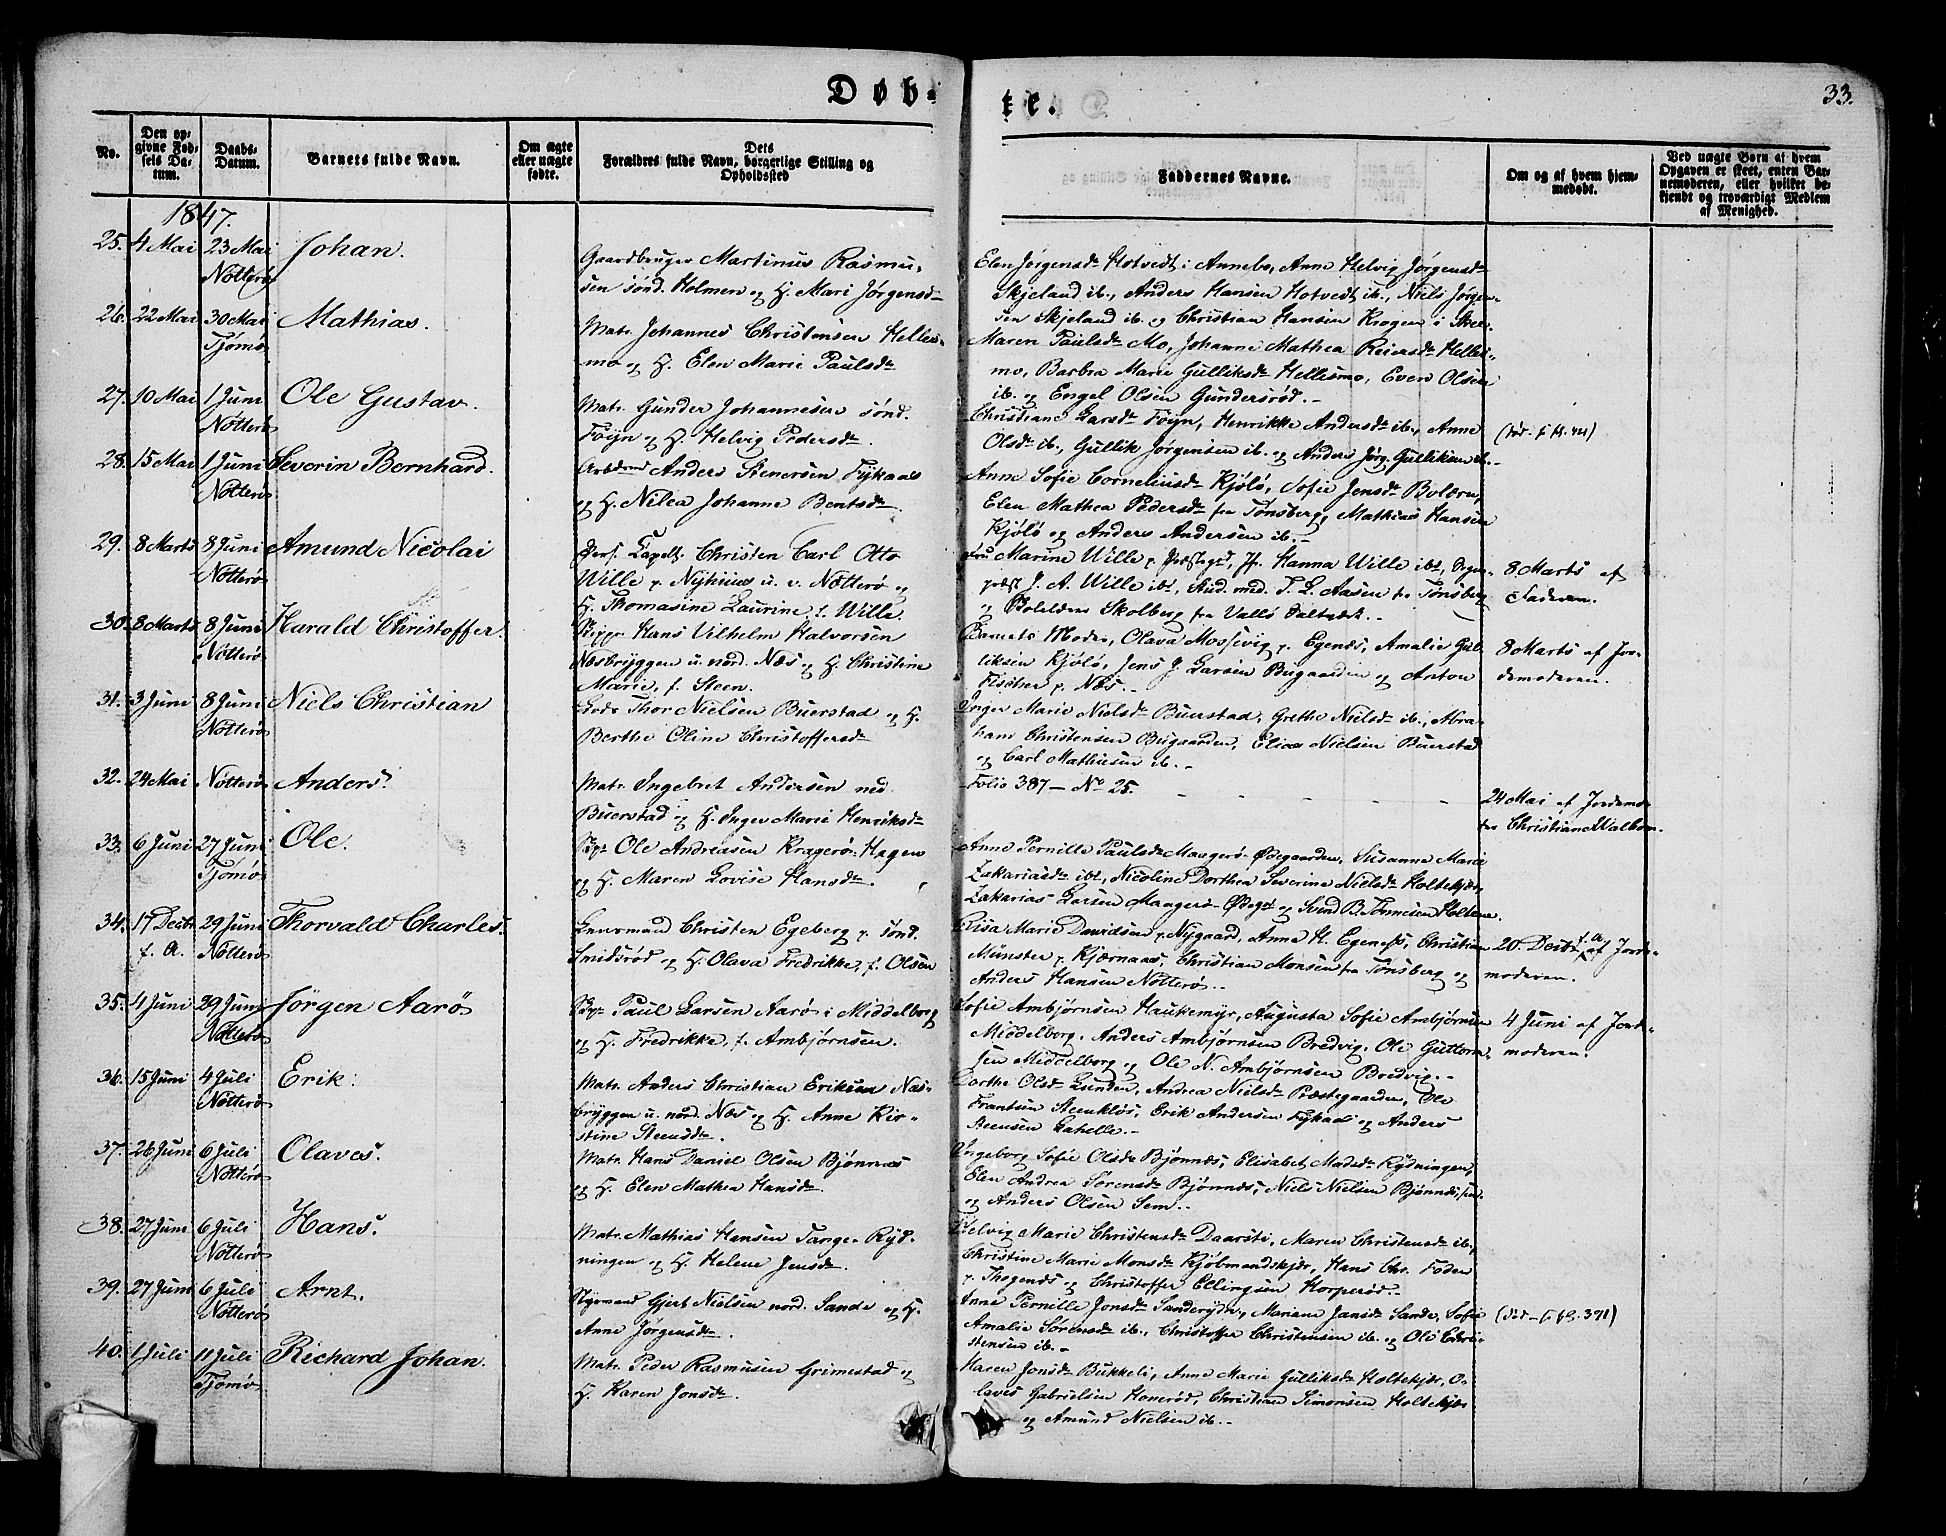 Døb-
te.
33.
No.
Den op-
givne Fød-
sels Da-
tum.
Daabs-
Datum.
Barnets fulde Navn.
Om ægte
eller uægte
fødte.
Dets
Forældres fulde Navn, borgerlige Stilling og
Opholdssted
Faddernes Navne.
Om og af hvem hjem-
medøbt.
Ved uægte Børn af hvem
Opgaven er skeet, enten Bar-
nemoderen, eller hvilket be-
kjendt og troværdigt Medlem
af Menighed.
1847.
25. 4 Mai 23 Mai Nötterö Johan.
Gaardbruger Martinus Rasmu-
sen sönd. Holmen og H. Mari Jörgensd
Elen Jörgensd Hotvedt i Annebo, Anne Helvig Jörgensd
Skjeland ib., Anders Hansen Hotvedt ib., Niels Jörgen-
sen Skjeland ib. og Christian Hansen Krogen i
26. 22 Mai 30 Mai Tjömö Mathias.
Matr. Johannes Christensen Helles-
mo og H. Elen Marie Paulsd
Maren Paulsd Mo, Johanne Mathea Reiersd Helles-
mo, Barbra Marie Gulliksd Hellesmo, Even Olsen
ib. og Engel Olsen Gundersröd.
27. 10 Mai 1 Juni Nötterö Ole Gustav.
Matr. Gunder Johannesen sönd.
Föyn og H. Helvig Pedersd.
Christiane Larsd Föyn, Henrikke Andersd ib., Anne
Olsd ib., Gullik Jörgensen ib. og Anders Jörg. Gulliksen ib.
28. 15 Mai 1 Juni Nötterö Severin Bernhard.
Anders Stenersen Fykaas
og H. Nilea Johanne Bentsd.
Anne Sofie Corneliusd Kjölö, Sofie Jensd Bolærn,
Elen Mathea Pedersd fra Tönsberg, Mathias Hansen
Kjölö og Anders Andersen ib.
29. 8 Marts 8 Juni Nötterö Amund Nicolai
Pers. Capell. Christen Carl Otto
Wille p. Nyhuus u. v. Nötterö og
H. Thomasine Laurine f. Wille.
Fru Marine Wille p. Præstegd, Jfr. Hanna Wille ibt,
præst J. A. Wille ibt, Stud. med. T. L. Aasen fra Tönsberg
og Skolberg fra Vallö Saltværk.
8 Marts af
Faderen.
30. 8 Marts 8 Juni Nötterö Harald Christoffer.
Skippr Hans Vilhelm Halvorsen
Næsbryggen u. nord. Næs og H. Christine
Marie, f. Steen.
Barnets Moder, Olava Mossevig p. Egenes, Amalie Gul-
liksen Kjölö, Jens J. Larsen Bugaarden og Anton
Fischer p. Næs.
8 Marts af Jor-
demoderen.
31. 3 Juni 8 Juni Nötterö Niels Christian
Lods Thor Nielsen Buerstad og H.
Berthe Oline Christoffersd
Inger Marie Nielsd Buerstad, Grethe Nielsd ib., Abra-
ham Christensen Bugaarden, Elias Nielsen Buerstad
og Carl Mathisen ib.
32. 24 Mai Nötterö Anders.
Matr. Ingebret Andersen ned.
Buerstad og H. Inger Marie Henriksd
Folio 387 — No 25.
24 Mai af Jordemo-
der Christiane
33. 6 Juni 27 Juni Tjömö Ole.
Skpr Ole Andreasen Kragerö-Hagen
og H. Maren Lovise Hansd.
Anne Pernille Paulsd Maagerö-Ödegaarden, Susanne Marie
Zakariasd ibt, Nicoline Dorthea Severine Nielsd Holtekjær,
Zakarias Larsen Maagerö-Ödegd og Svend B. Tönnesen Holtene.
34. 17 Decbr f. A. 29 Juni Nötterö Thorvald Charles.
Lensmand Christen Egeberg p. sönd.
Smidsröd og H. Olava Fredrikke, f. Olsen
Risa Marie Davidsen p. Nygaard, Anna H. Egeness, Christian
Münster p. Kjærnaas, Christian Monsen fra Tönsberg og
Anders Hansen Nötterö.
20. Decbr f. A. af Jorde-
moderen.
35. 4 Juni 29 Juni Nötterö Jörgen Aarö
Skpr Paul Larsen Aarö i Middelborg
og H. Fredrikke, f. Ambjörnsen.
Sofie Ambjörnsen Haukemyr, Augusta Sofie Ambjörnsen
Middelborg, Anders Ambjörnsen Bredvig, Ole Guttorm-
sen Middelborg og Ole N. Ambjörnsen Bredvig.
4 Juni af Jord-
moderen.
36. 15 Juni 4 Juli Nötterö Erik.
Matr. Anders Christian Eriksen Næs-
bryggen u. nord. Næs og H. Anne Kir-
stine Steensd.
Dorthe Olsd Lunden, Andrea Nielsd Præstegaarden, Ole
Frantsen Steenklös, Erik Andersen Fykaas og Anders
Steensen Gahelle.
37. 26 Juni 6 Juli Nötterö Olaves.
Matr. Hans Daniel Olsen Bjönnæs
og H. Elen Mathea Hansd.
Ingeborg Sofie Olsd Bjönnes, Elisabet Madsd Rydningen,
Elen Andrea Sörensd Bjönnes, Niels Nielsen Bjönnes,
og Anders Olsen Sem.
38. 27 Juni 6 Juli Nötterö Hans.
Matr. Mathias Hansen Tange-Ryd-
ningen og H. Helene Jensd.
Helvig Marie Christensd Daarsti, Maren Christensd ib.,
Christine Marie Monsd Kjöbmandskjær, Hans Chr. Foden
p. Thogenes og Christoffer Ellingsen Horperöd.
39. 27 Juni 6 Juli Nötterö Arnt.
Styrmand Gjert Nielsen nord. Sande og H.
Anne Jörgensd.
Anne Pernille Jonsd Sanderydn., Mariane Jansd Sande, Sofie
Amalie Sörensd ib., Christoffer Christensen ib. og Ole Chri-
stensen ib.
40. 1 Juli 11 Juli Tjömö Richard Johan.
Matr. Peder Rasmusen Grimestad og
H. Karen Jonsd.
Maren Jonsd Bukkeli, Anne Marie Gulliksd Holtekjær, O-
laves Gabrielsen Honeröd, Christian Simonsen Holtekjær
og Amund Nielsen ib.